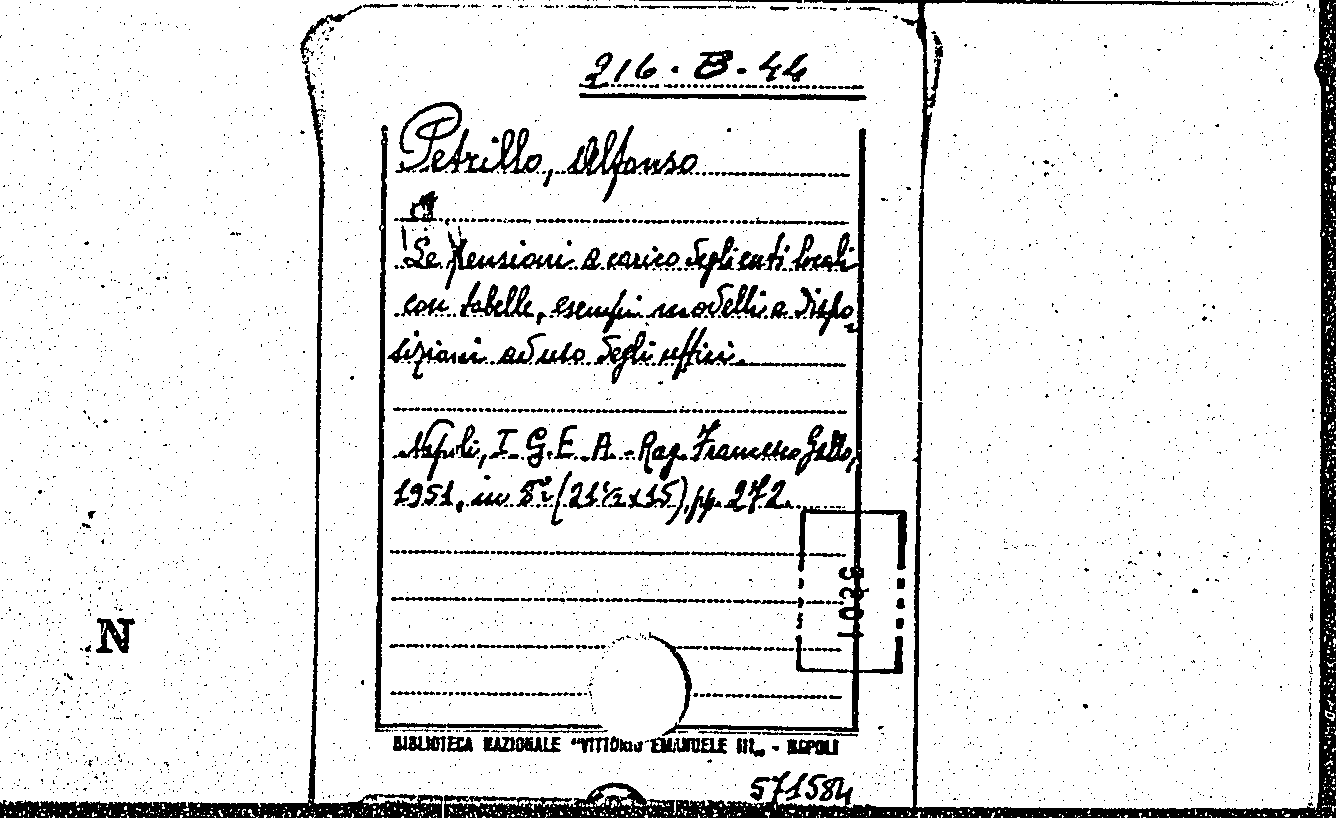 216. B. 44
Petrillo, Alfonso
Le pensioni a carico degli enti locali
con tabelle, esempi modelli e dispo-
sizioni ad uso degli uffici.
Napoli, I. G. E. A. - Rag. Francesco Gallo,
1951, in 8° (21½x15), pp. 272.
N
BIBLIOTECA NAZIONALE "VITTORIO EMANUELE III„ - NAPOLI
571584